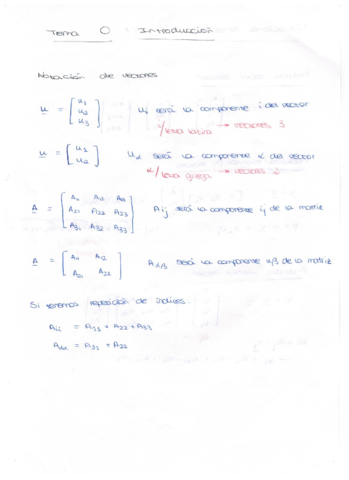 Tema 0 : Introducción
Notación de vectores
u = [u1 u2 u3] ui será la componente i del vector
c/ letra latina → vectores 3
u = [u1 u2] uα será la componente α del vector
α/ letra griega → vectores 2
A = [A11 A12 A13 A21 A22 A23 A31 A32 A33] Aij será la componente ij de la matriz
A = [A11 A12 A21 A22] Aαβ será la componente αβ de la matriz
Si tenemos repetición de índices.
Aii = A11 + A22 + A33
Aαα = A11 + A22